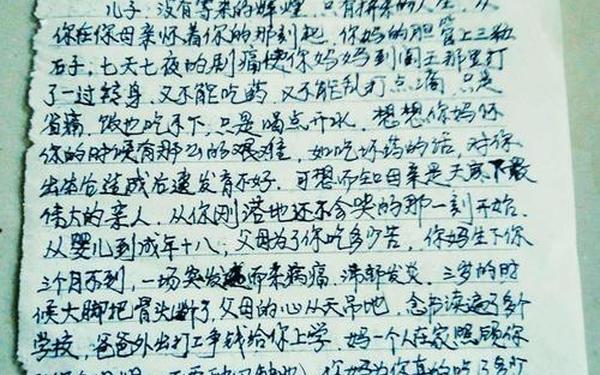 儿子：没有等来的辉煌，只有拼来的人生，从
你在你母亲怀着你的那刻起，你妈的胆管上三粒
石子，七天七夜的剧痛使你妈妈到阎王那里打
了一过转身，又不能吃药，又不能乱打点滴，只是
省痛，饭也吃不下，只是喝点开水，想想你妈怀
你的时候有那么的艰难，如吃坏药的话，对你
出生后造成后遗发育不好。可想而知母亲是天底下最
伟大的亲人。从你刚落地还不会哭的那一刻开始
从婴儿到成年十八，父母为了你吃多少苦，你妈生下你
三个月不到，一场突发而来病痛，发炎。三岁的时
候大脚把骨头断了，父母的心从天吊地，念书读遍了多个
学校，爸爸外出打工争钱给你上学，妈一个人在家照顾你
你妈为你真的吃了多少